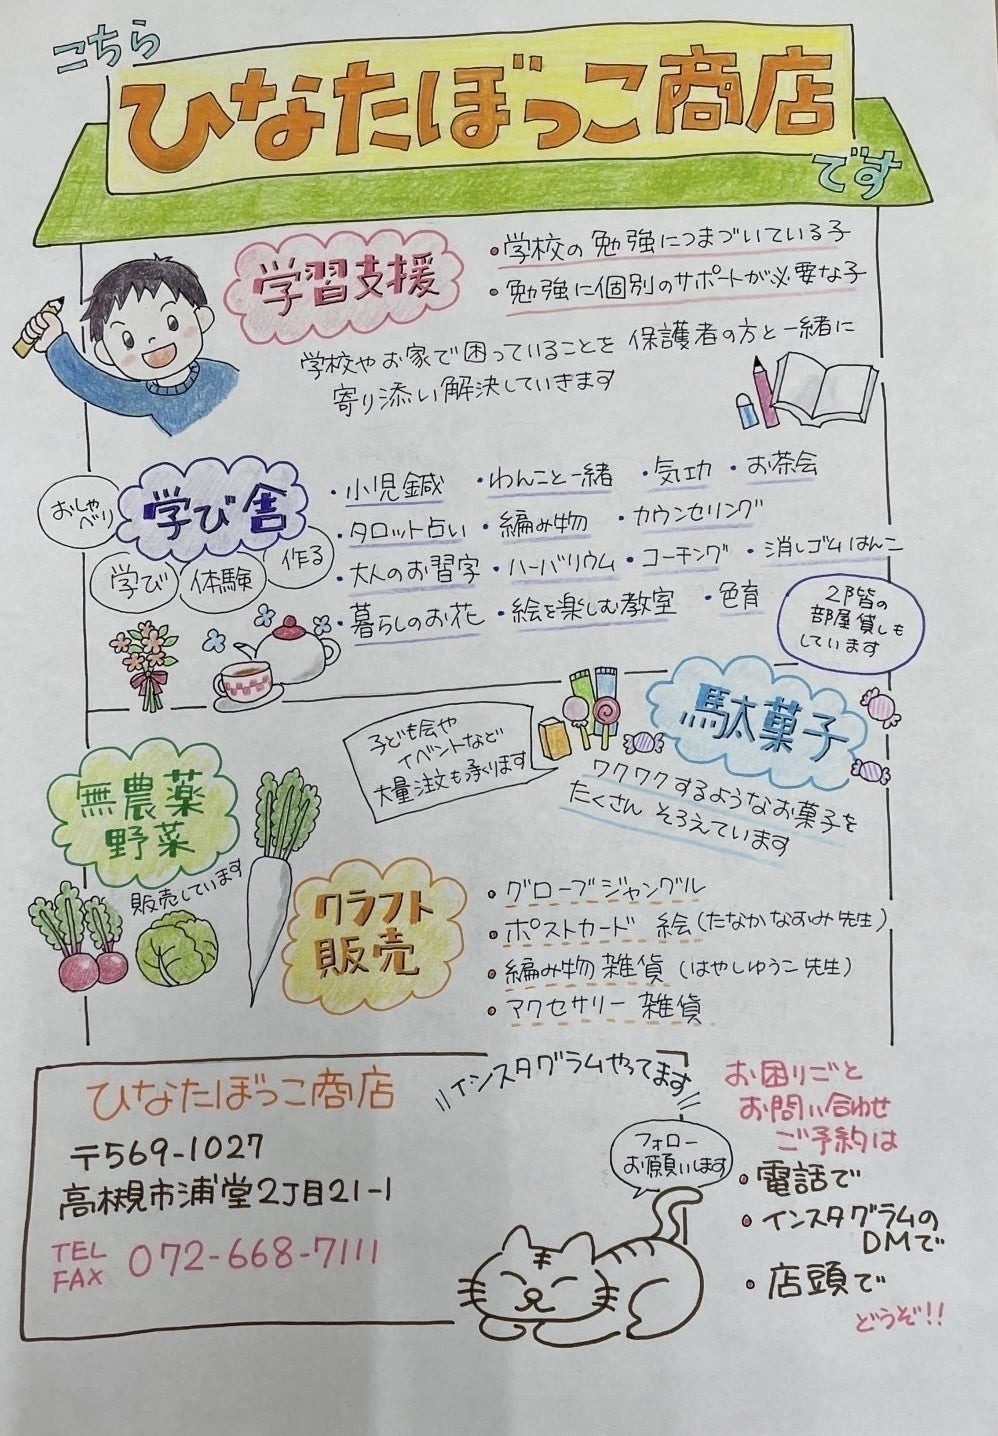 こちら
ひなたぼっこ商店
です
学習支援
・学校の勉強につまづいている子
・勉強に個別のサポートが必要な子
学校やお家で困っていることを 保護者の方と一緒に
寄り添い解決していきます
おしゃべり
学び舎
学び
体験
作る
・小児鍼 ・わんこと一緒 ・気功 ・お茶会
・タロット占い ・編み物 ・カウンセリング
・大人のお習字 ・ハーバリウム ・コーチング ・消しゴムはんこ
・暮らしのお花 ・絵を楽しむ教室 ・色育
2階の
部屋貸しも
しています
駄菓子
子ども会や
イベントなど
大量注文も承ります
ワクワクするようなお菓子を
たくさん そろえています
無農薬
野菜
販売しています
クラフト
販売
・グローブジャングル
・ポストカード 絵(たなかなおみ先生)
・編み物 雑貨 (はやしゆうこ先生)
・アクセサリー 雑貨
ひなたぼっこ商店
〒569-1027
高槻市浦堂2丁目21-1
TEL
FAX 072-668-7111
インスタグラムやってます
フォロー
お願いします
お困りごと
お問い合わせ
ご予約は
・電話で
・インスタグラムの
DMで
・店頭で
どうぞ!!